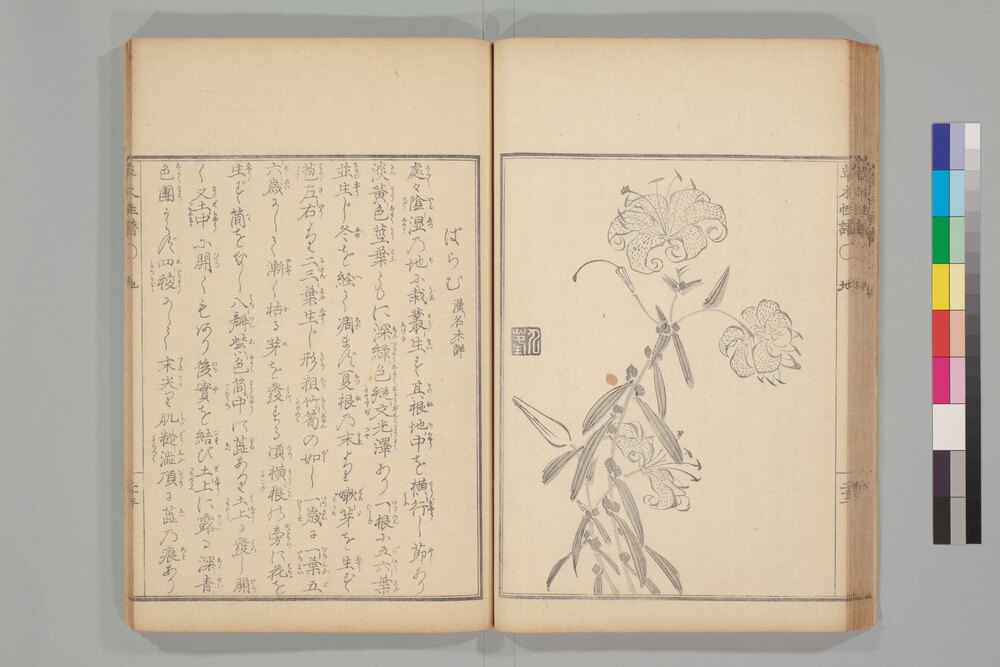 ばらむ 漢名未詳
処々陰湿の地に栽叢生す其根地中を横行し節あり
淡黄色茎葉ともに深緑色縦文光澤あり一根に五六葉
並生し冬を経て凋まず夏根の末より嫩芽を生ず
苞左右より二三葉生し形粗竹筍の如し一歳に一葉五
六歳にして漸く枯る芽を發する頃横根の旁に花を
生ず筒をなし八瓣紫色筒中に蕋あり土上に發し開
く又土中に開くもあり後實を結び土上に露る深青
色團にして四稜あり
頂に蕋の痕あり
草木性譜
地